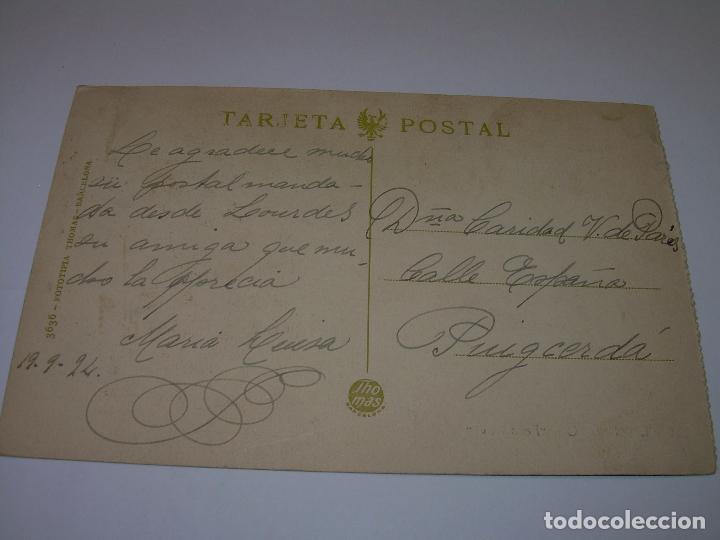 TARJETA POSTAL
Le agradece mucho
su postal manda-
da desde Lourdes
su amiga que mu-
cho la aprecia
Maria Luisa
19-9-24.
Dña Caridad V. de Parés
Calle España
Puigcerdá
3636 - FOTOTIPIA THOMAS - BARCELONA
Thomas
BARCELONA
todocoleccion
todocoleccion.net